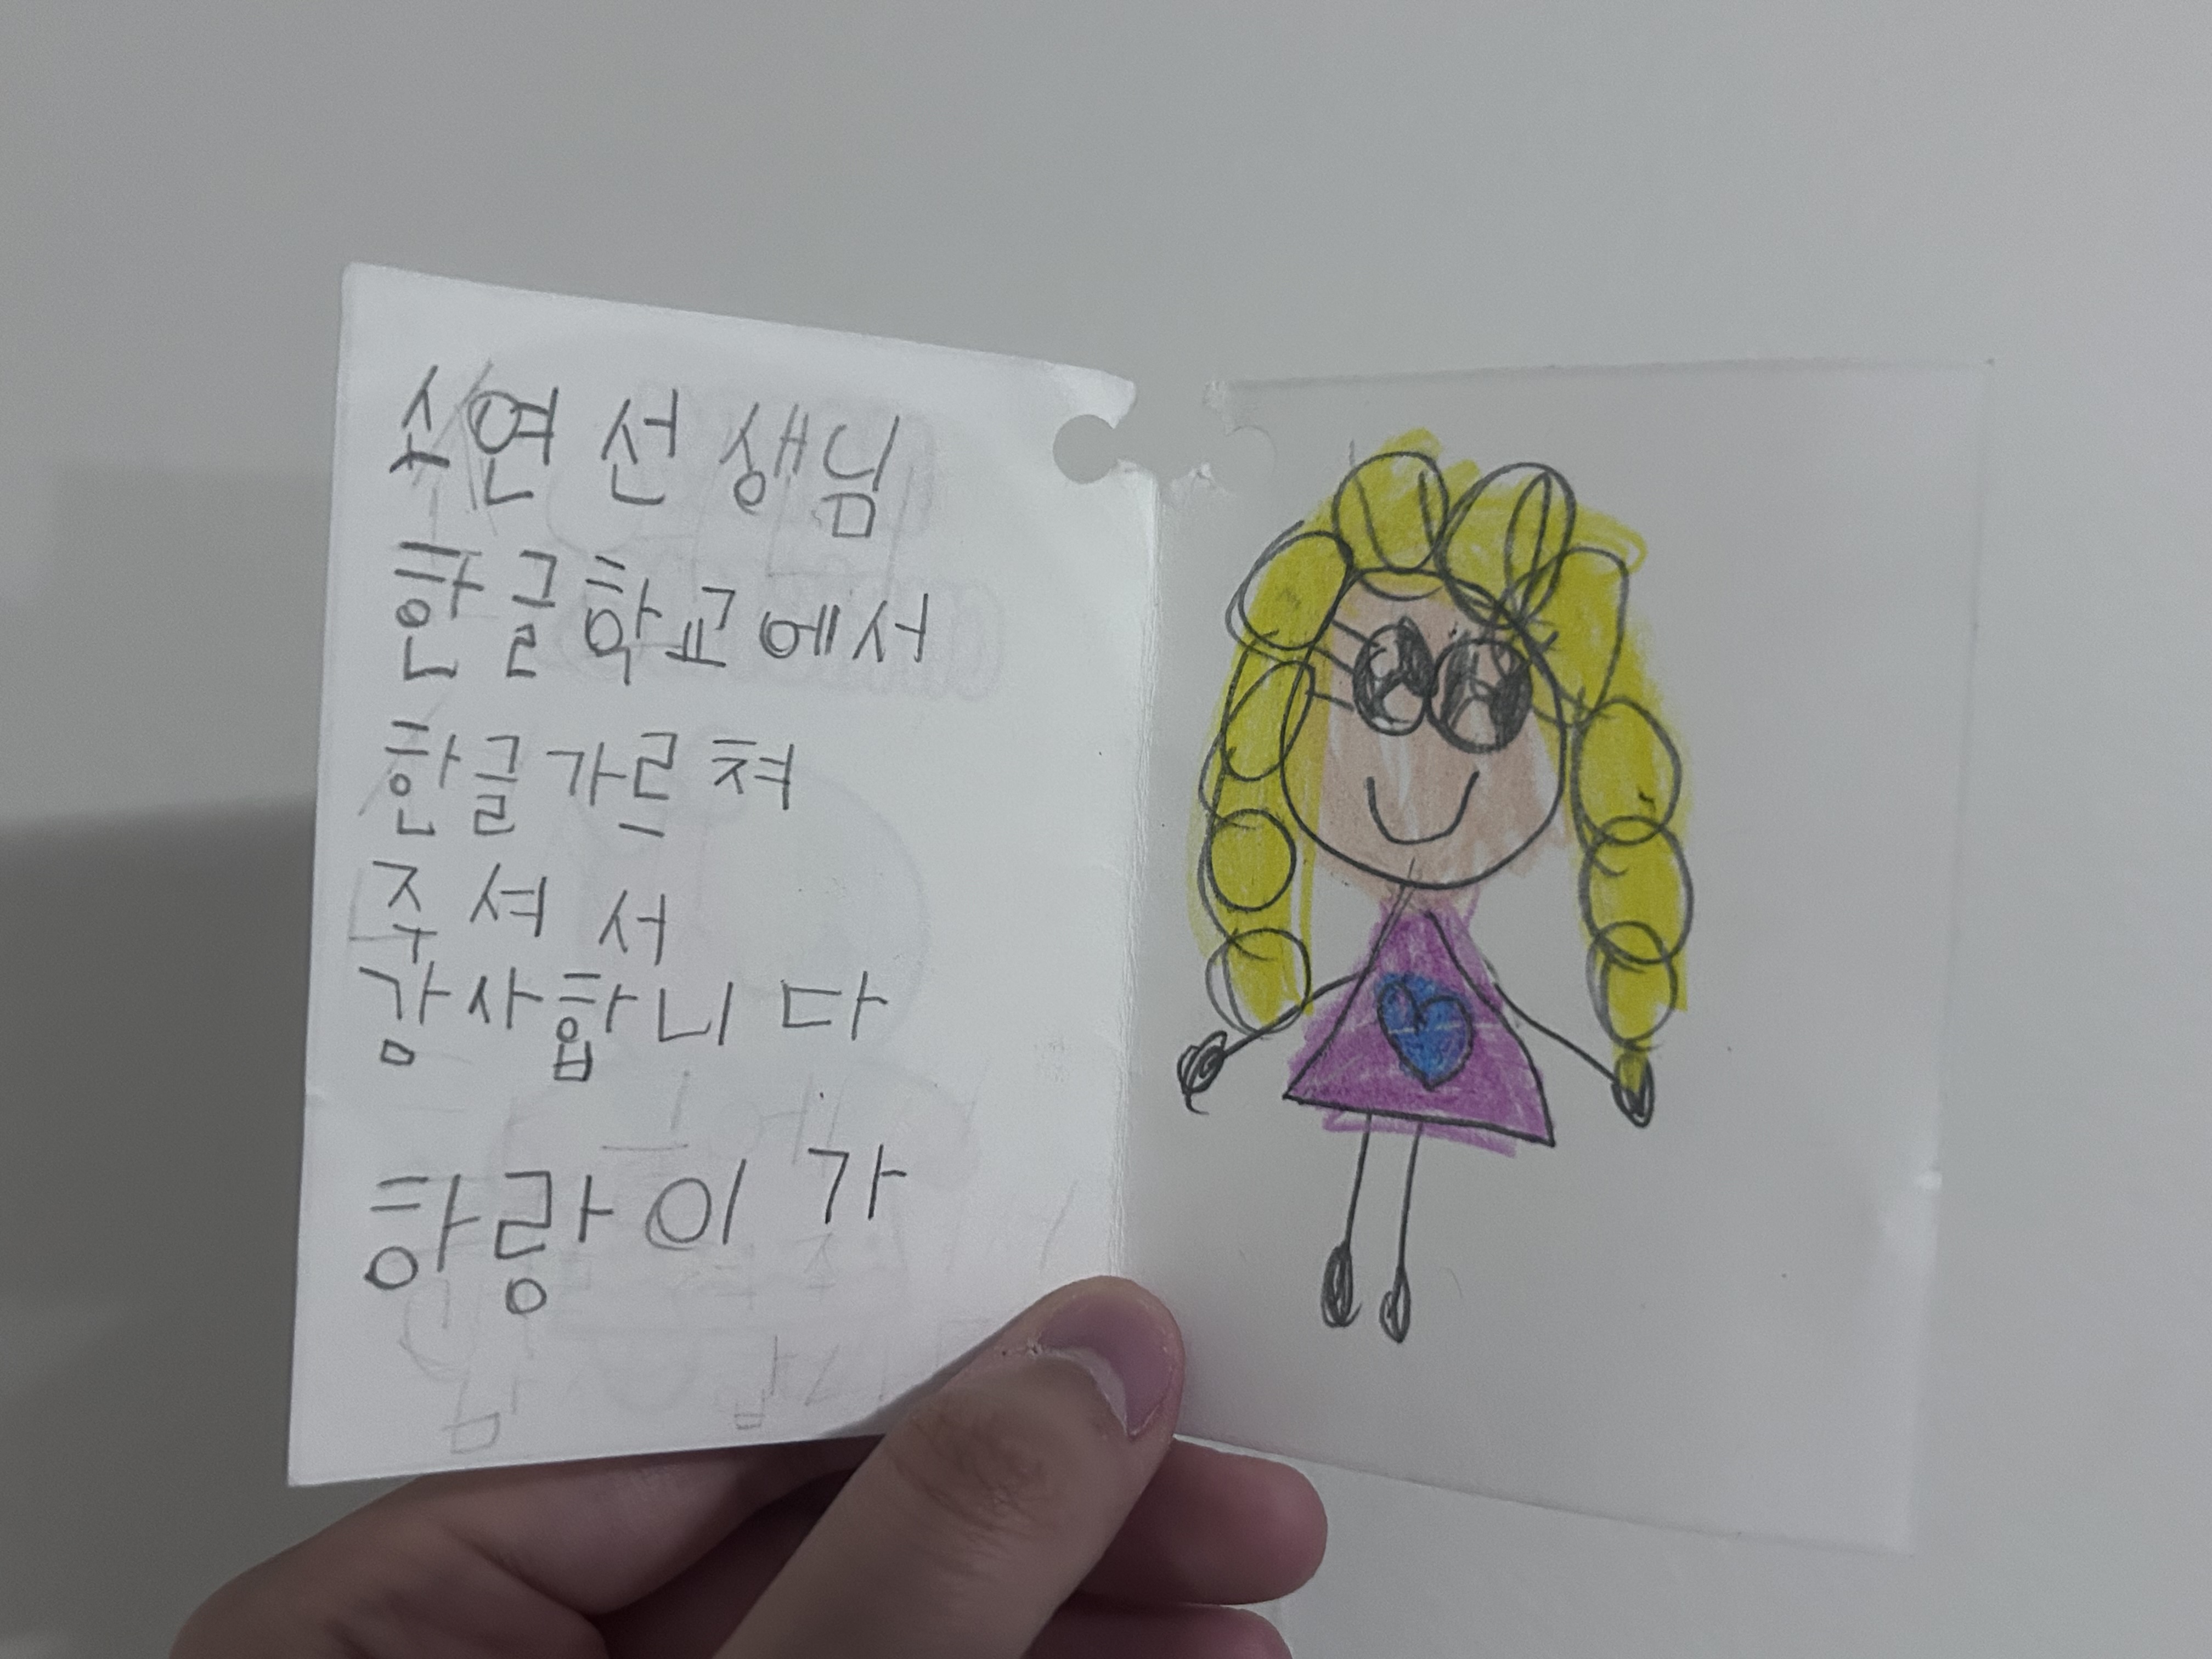 소연 선생님
한글학교에서
한글가르쳐
주셔서
감사합니다
항랑이가